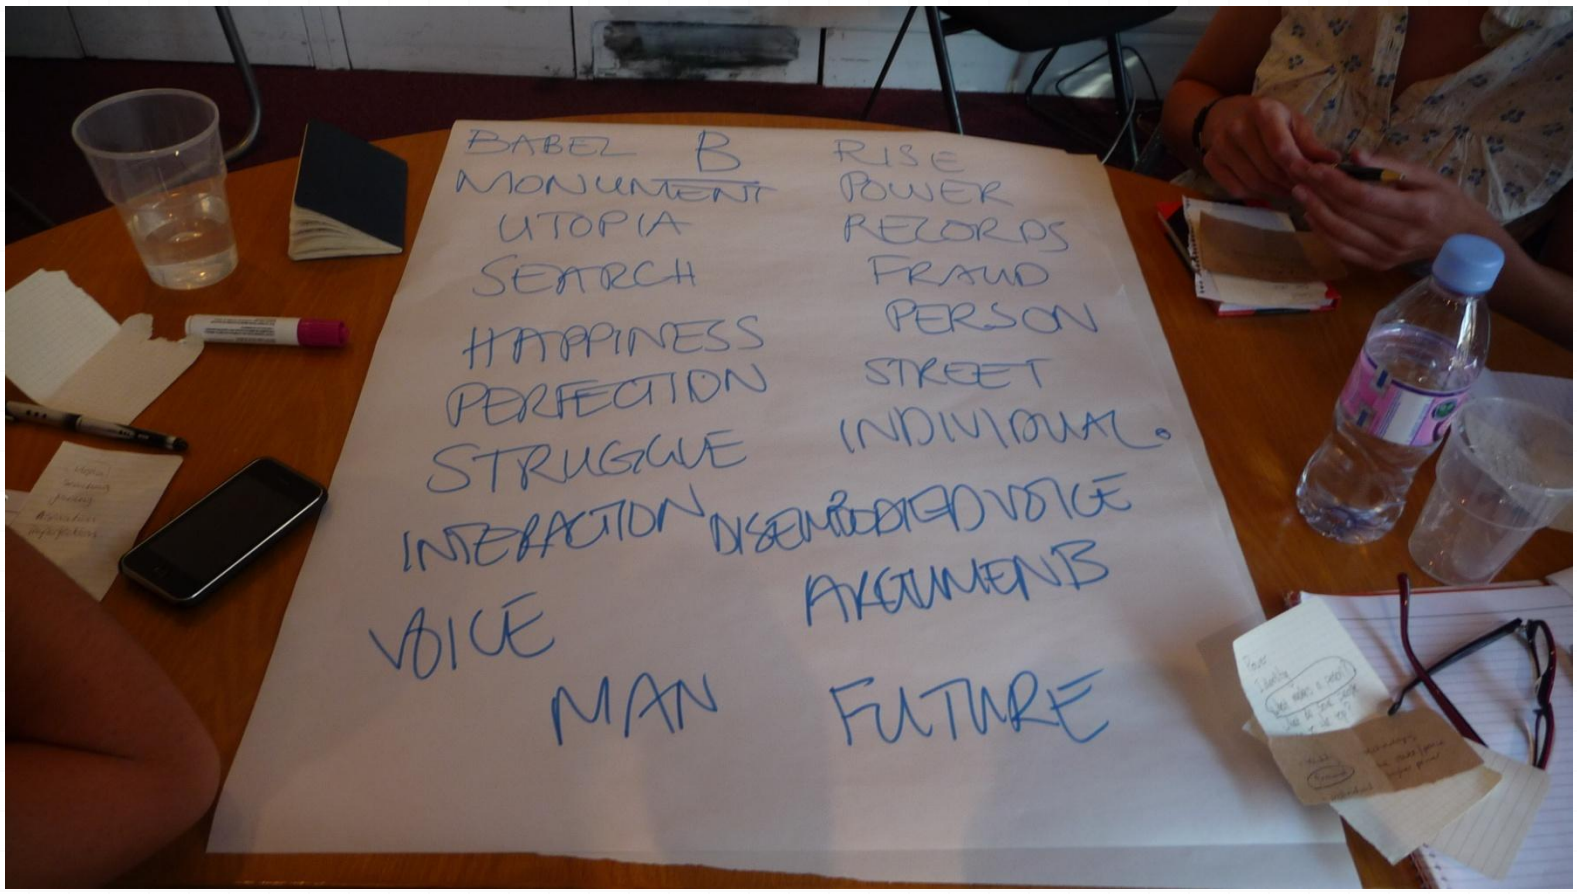 B
BABEL
MONUMENT
UTOPIA
SEARCH
HAPPINESS
PERFECTION
STRUGGLE
INTERACTION
VOICE
MAN
RISE
POWER
RECORDS
FRAUD
PERSON
STREET
INDIVIDUAL.
DISEMBODIED VOICE
ARGUMENTS
FUTURE
Power
Identity